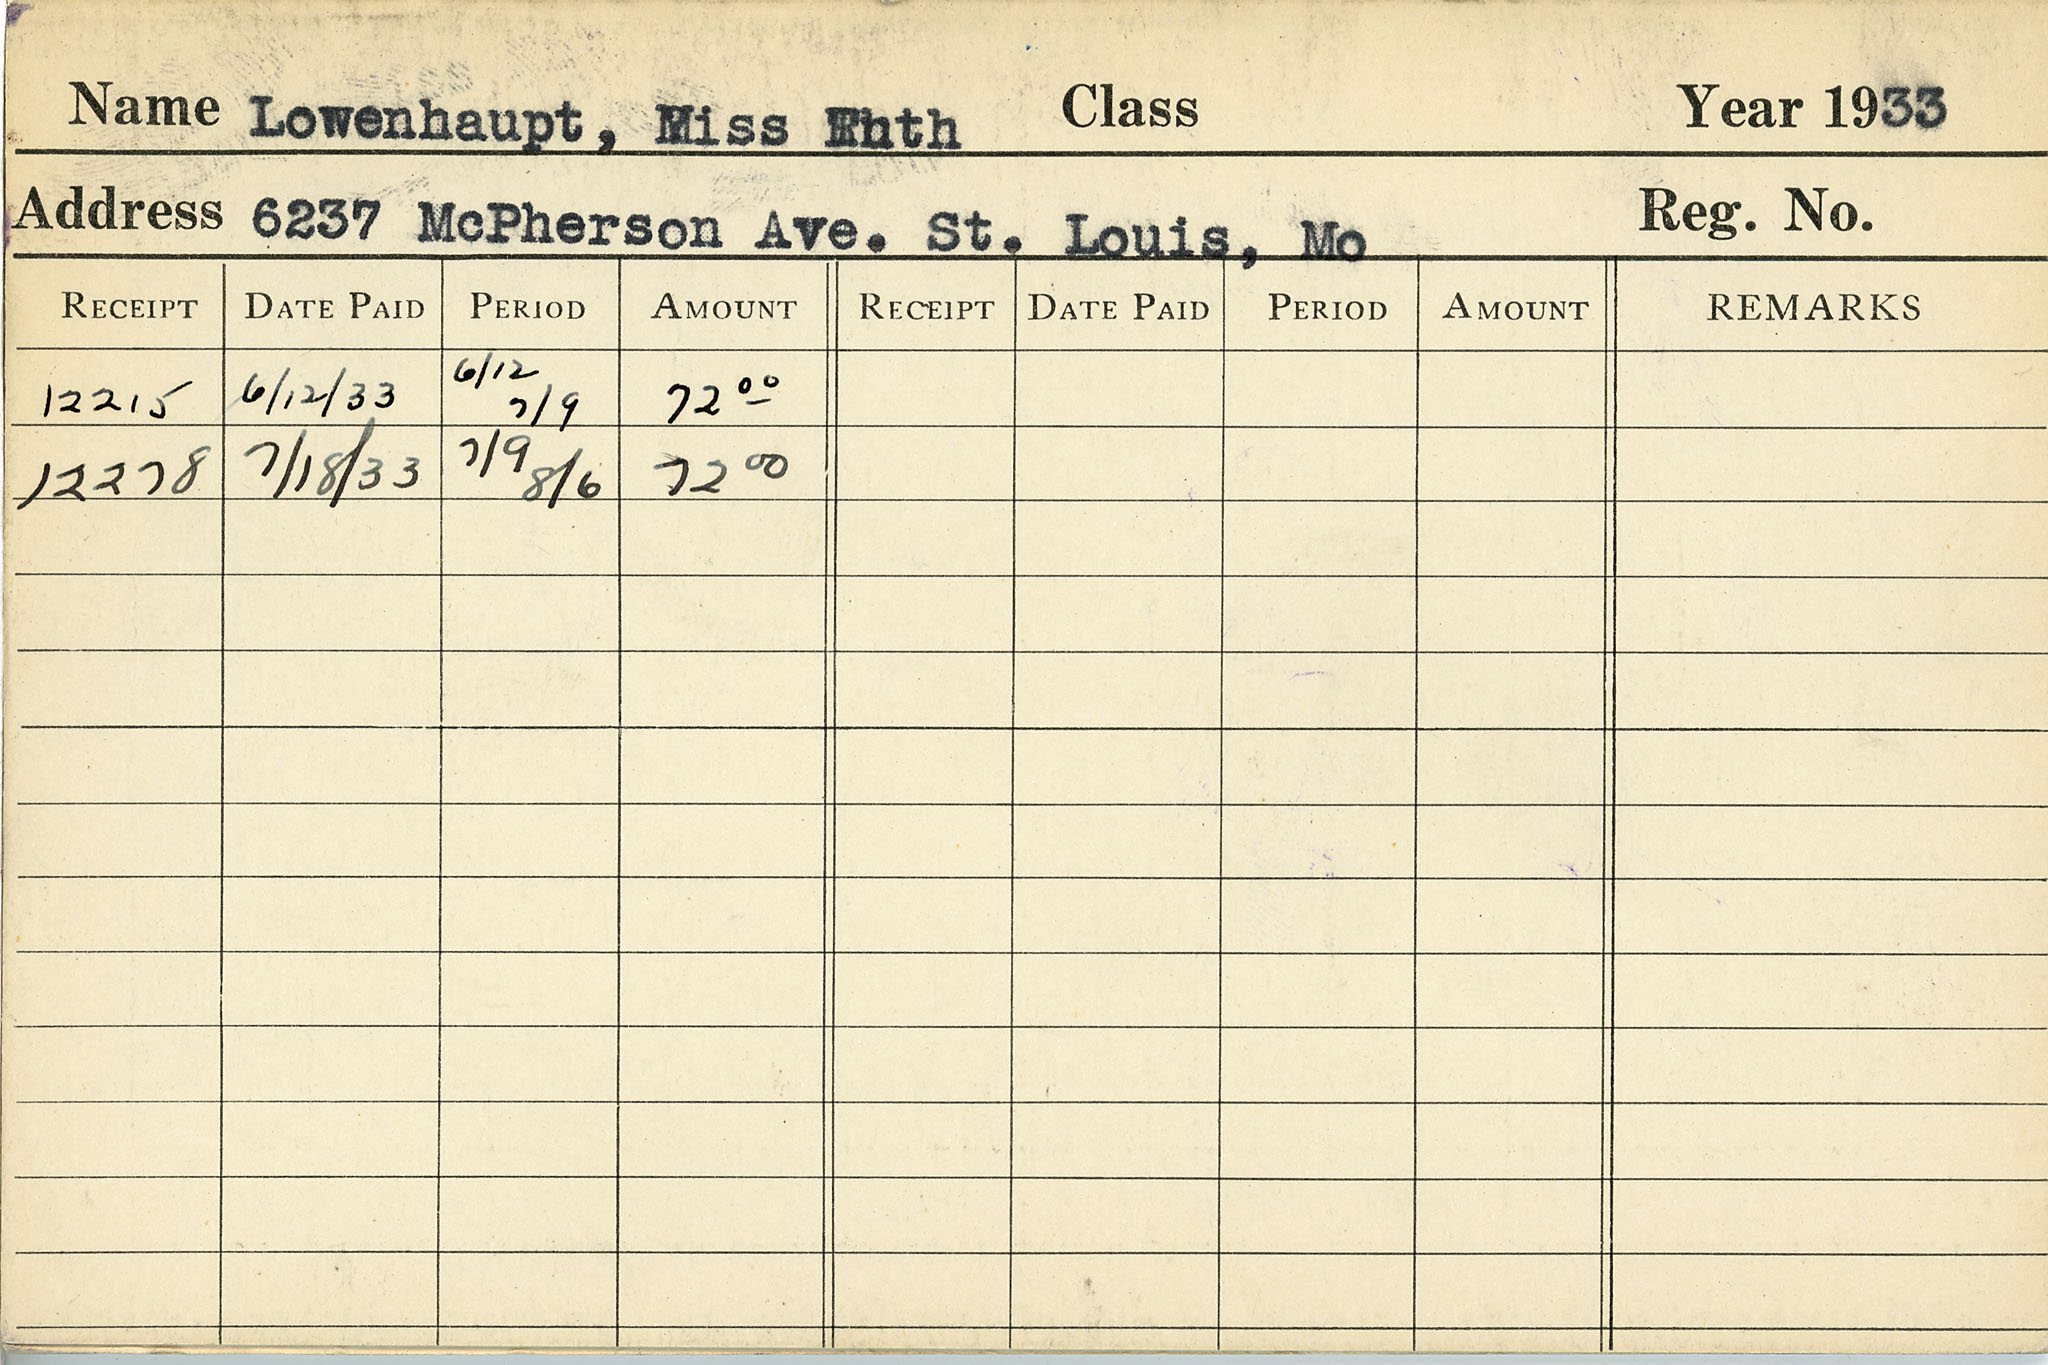 Name Lowenhaupt, Miss Class Year 1933
Address 6237 McPherson Ave. St. Louis, Mo Reg. No.
RECEIPT DATE PAID PERIOD AMOUNT RECEIPT DATE PAID PERIOD AMOUNT REMARKS
12215 6/12/33 6/12 7/9 72 00
12278 7/18/33 7/9 8/6 72 00